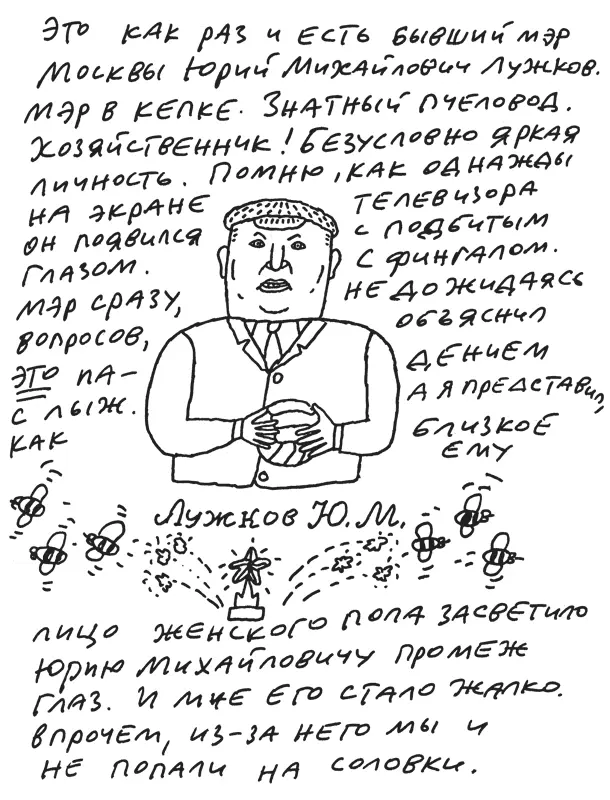 Это как раз и есть бывший мэр
Москвы Юрий Михайлович Лужков.
Мэр в кепке. Знатный пчеловод.
Хозяйственник! Безусловно яркая
личность. Помню, как однажды
на экране телевизора
он появился с подбитым
глазом. С фингалом.
Мэр сразу, не дожидаясь
вопросов, объяснил
это па- дением
с лыж. А я представил,
как близкое
ему
Лужков Ю.М.
лицо женского пола засветило
Юрию Михайловичу промеж
глаз. И мне его стало жалко.
Впрочем, из-за него мы и
не попали на Соловки.